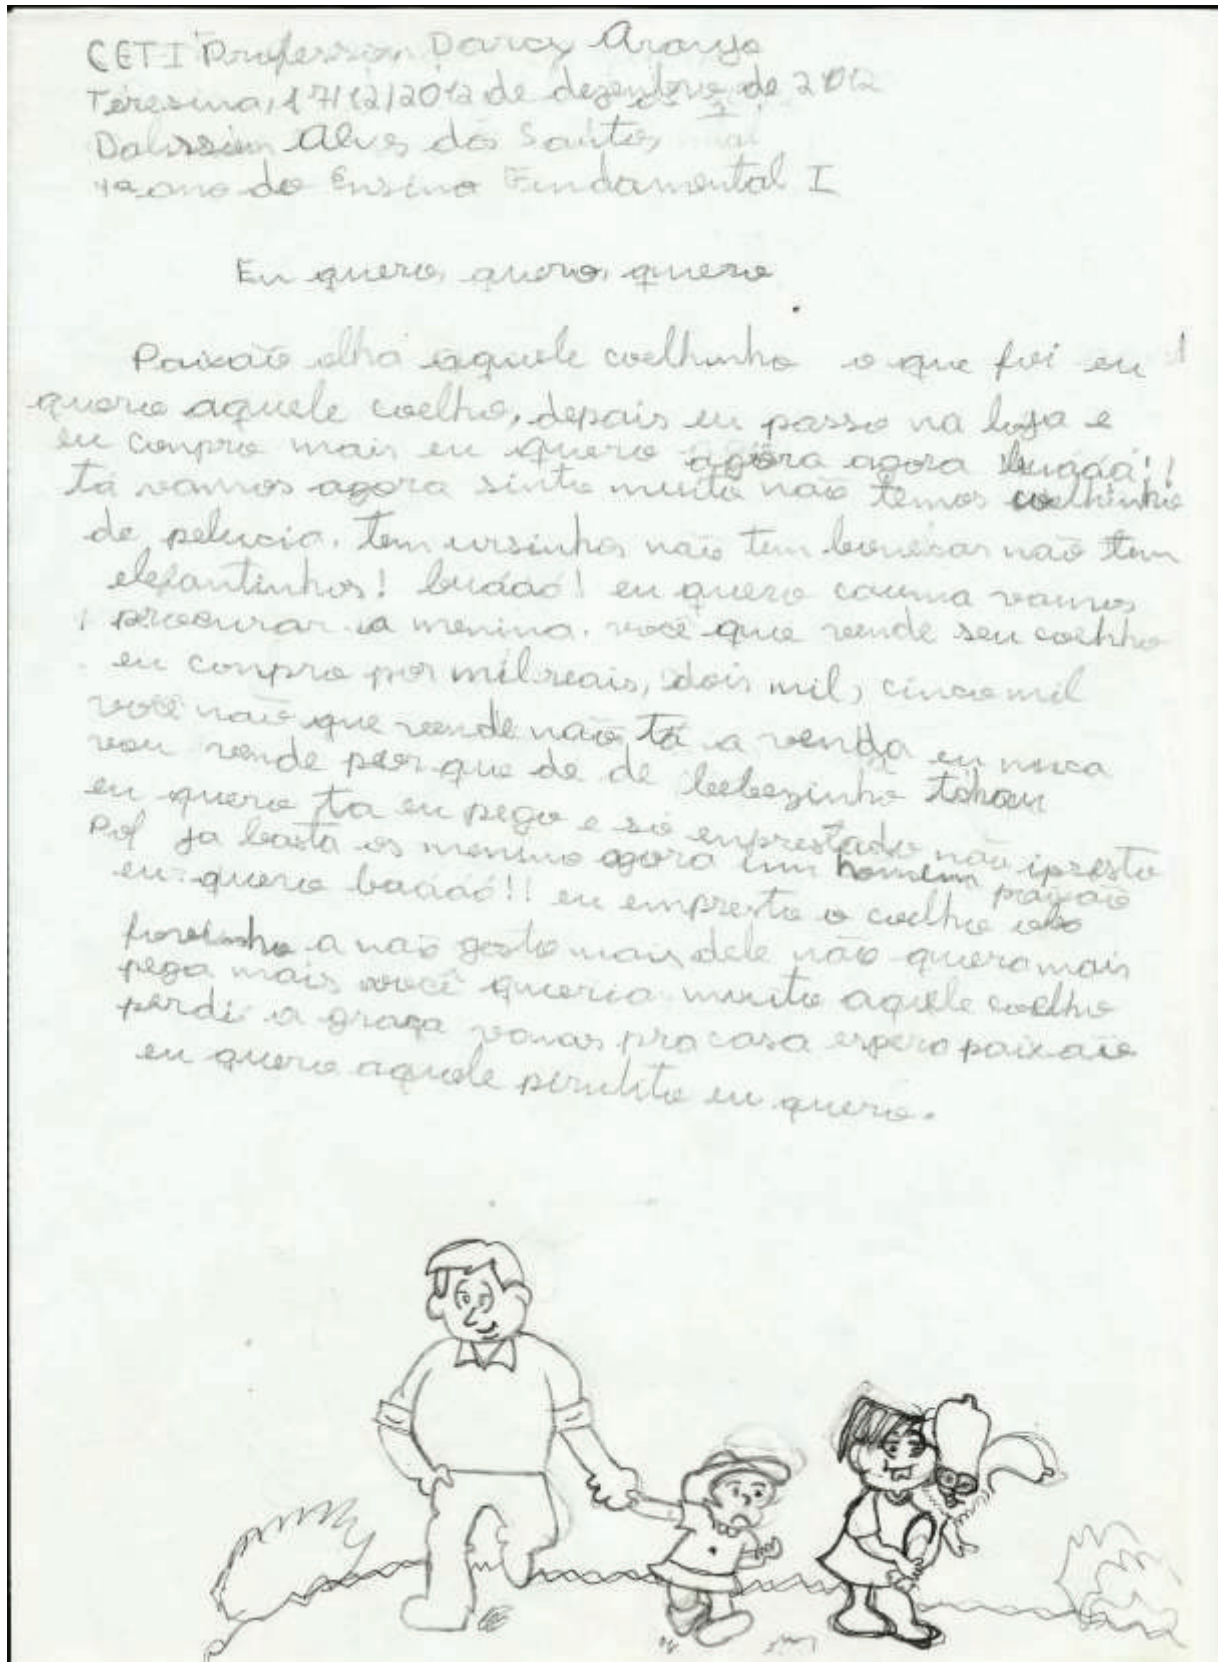 CETI Professor Darcy Araujo
Teresina, 17/12/2012 de dezembro de 2012
Alves dos Santos
4º ano do Ensino Fundamental I
Eu quero, quero, quero
Paixão olha aquele coelhinho o que foi eu
quero aquele coelho, depois eu passo na loja e
eu conpro mais eu quero agora agora buáaá!!
tá vamos agora sinto muito não temos coelhinho
de pelucia. tem ursinhos não tem bonecas não tem
elefantinhos! buáaá! eu quero cauma vamos
procurar a menina. você que vende seu coelhho
eu conpro por mil reais, dois mil, cinco mil
você não que vende não tá a venda eu nuca
vou vende por que de de bebezinho
eu quero ta eu pego e so enprestado não ipresto
Pof ja basta os menino agora um homem paixão
eu quero baáaá!! eu empresto o coelho
a não gosto mais dele não quero mais
pega mais você queria muito aquele coelho
perdi a graça vamos pra casa espero paixaio
eu quero aquele eu quero.